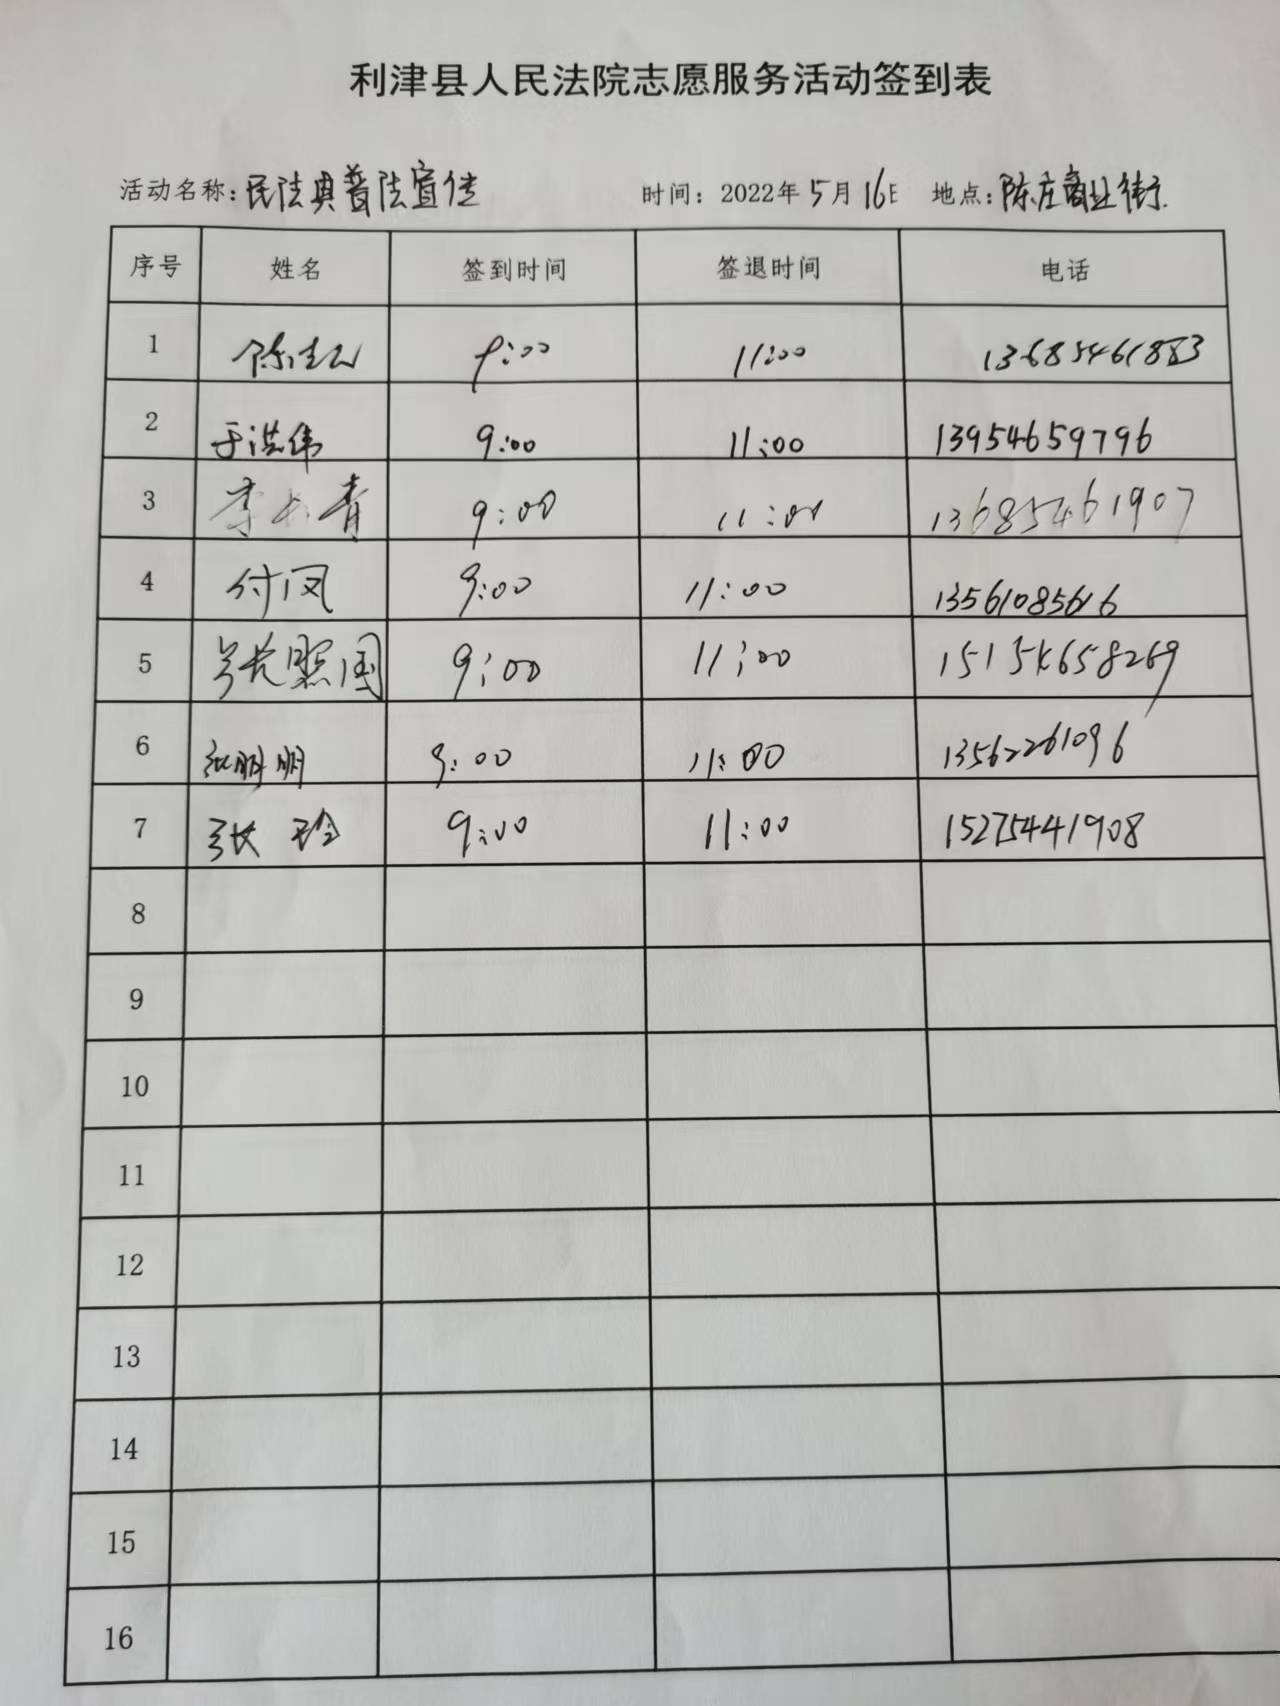 利津县人民法院志愿服务活动签到表
活动名称:民法典普法宣传 时间:2022年5月16日 地点:陈庄商业街.
序号 姓名 签到时间 签退时间 电话
1 陈 9:00 11:00 13685461883
2 于洪伟 9:00 11:00 13954659796
3 李长青 9:00 11:00 13685461907
4 付凤 9:00 11:00 13561085616
5 张照国 9:00 11:00 15154658269
6 明明 9:00 11:00 13562261096
7 张玲 9:00 11:00 15275441908
8
9
10
11
12
13
14
15
16